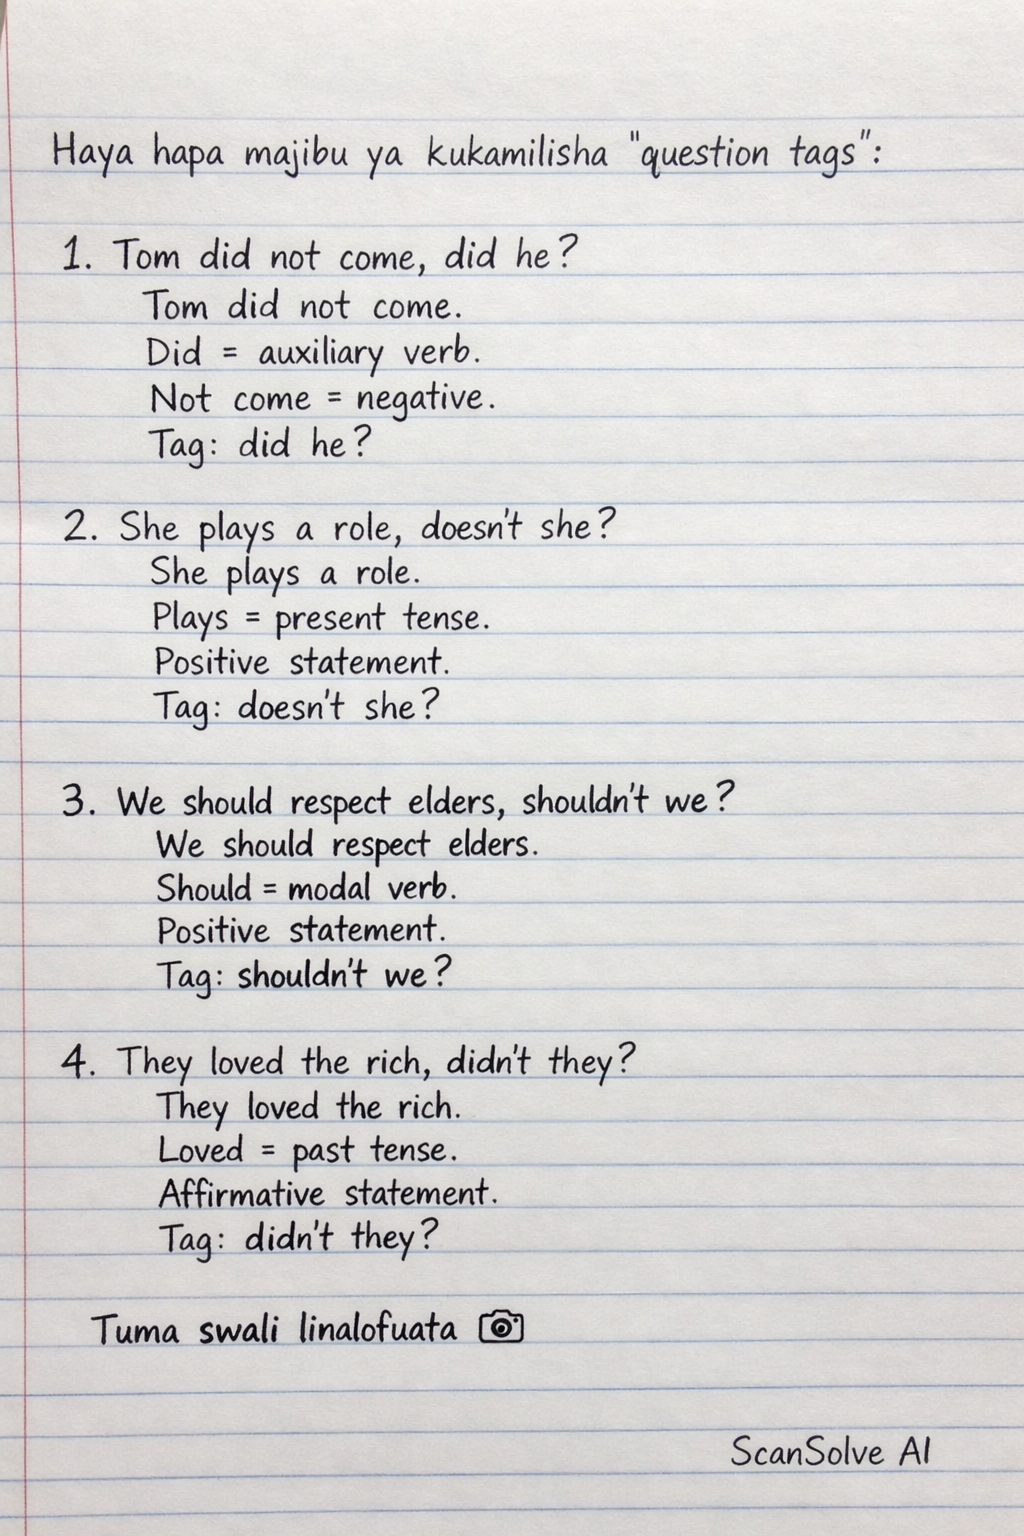 Haya hapa majibu ya kukamilisha "question tags":
1. Tom did not come, did he?
Tom did not come.
Did = auxiliary verb.
Not come = negative.
Tag: did he?
2. She plays a role, doesn't she?
She plays a role.
Plays = present tense.
Positive statement.
Tag: doesn't she?
3. We should respect elders, shouldn't we?
We should respect elders.
Should = modal verb.
Positive statement.
Tag: shouldn't we?
4. They loved the rich, didn't they?
They loved the rich.
Loved = past tense.
Affirmative statement.
Tag: didn't they?
Tuma swali linalofuata 📷
ScanSolve AI